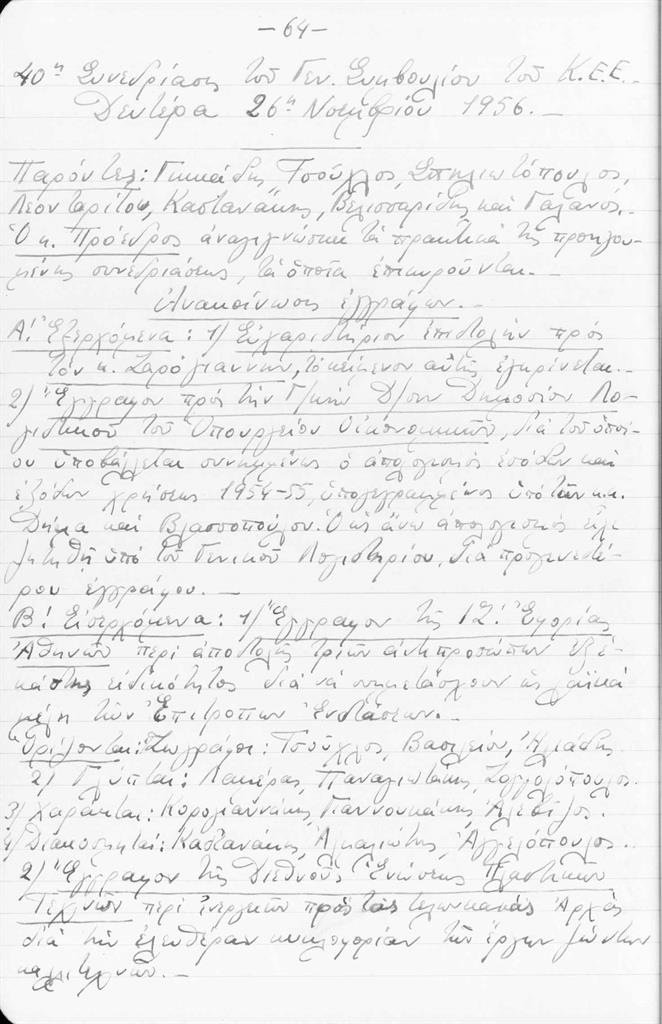 -64-
40η Συνεδρίασις τοῦ Γεν. Συμβουλίου τοῦ Κ.Ε.Ε.-
Δευτέρα 26η Νοεμβρίου 1956.-
Παρόντες: Γκικάδης, Τσοῦχλος, Σπηλιωτόπουλος,
Λεονταρίτου, Καστανάκης, Βελισσαρίδης καὶ Γαλανός.-
Ὁ κ. Πρόεδρος ἀναγιγνώσκει τὰ πρακτικὰ τῆς προηγου-
μένης συνεδριάσεως, τὰ ὁποῖα ἐπικυροῦνται.-
Ἀνακοίνωσις ἐγγράφων.-
Α! Ἐξερχόμενα: 1) Εὐχαριστήριον ἐπιστολὴν πρὸς
τὸν κ. Σαρόγιαννην, τὸ κείμενον αὐτῆς ἐγκρίνεται.-
2) Ἔγγραφον πρὸς τὴν Γ/κὴν Δ/σιν Δημοσίου Λο-
γιστικοῦ τοῦ Ὑπουργείου Οἰκονομικῶν, διὰ τοῦ ὁποί-
ου ὑποβάλλεται συνημμένως ὁ ἀπολογισμὸς ἐσόδων καὶ
ἐξόδων χρήσεως 1954-55, ὑπογεγραμμένος ὑπὸ τῶν κ.κ.
Δήμα καὶ Βλασσοπούλου. Ὁ ὡς ἄνω ἀπολογισμὸς εἶχε
ζητηθῆ ὑπὸ τοῦ Γενικοῦ Λογιστηρίου, διὰ προγενεστέ-
ρου ἐγγράφου.-
Β! Εἰσερχόμενα: 1) Ἔγγραφον τῆς ΙΖ! Ἐφορίας
Ἀθηνῶν περὶ ἀποστολῆς τριῶν ἀντιπροσώπων ἐξ ἑ-
κάστης εἰδικότητος διὰ νὰ συμμετάσχουν ὡς λαϊκὰ
μέλη τῶν Ἐπιτροπῶν Ἐνστάσεων.-
Ὁρίζονται: Ζωγράφοι: Τσοῦχλος, Βασιλείου, Ἠλιάδης.
2) Γλύπται: Λαμέρας, Παναγιωτάκης, Ζογγολόπουλος.
3) Χαράκται: Κορογιαννάκης, Γιαννουκάκης, Ἀλεβίζος.
4) Διακοσμηταί: Καστανάκης, Ἀγγελόπουλος.-
2) Ἔγγραφον τῆς Διεθνοῦς Ἑνώσεως Πλαστικῶν
Τεχνῶν περὶ ἐνεργειῶν πρὸς τὰς τελωνειακὰς Ἀρχὰς
διὰ τὴν ἐλευθέραν κυκλοφορίαν τῶν ἔργων ζώντων
καλλιτεχνῶν.-